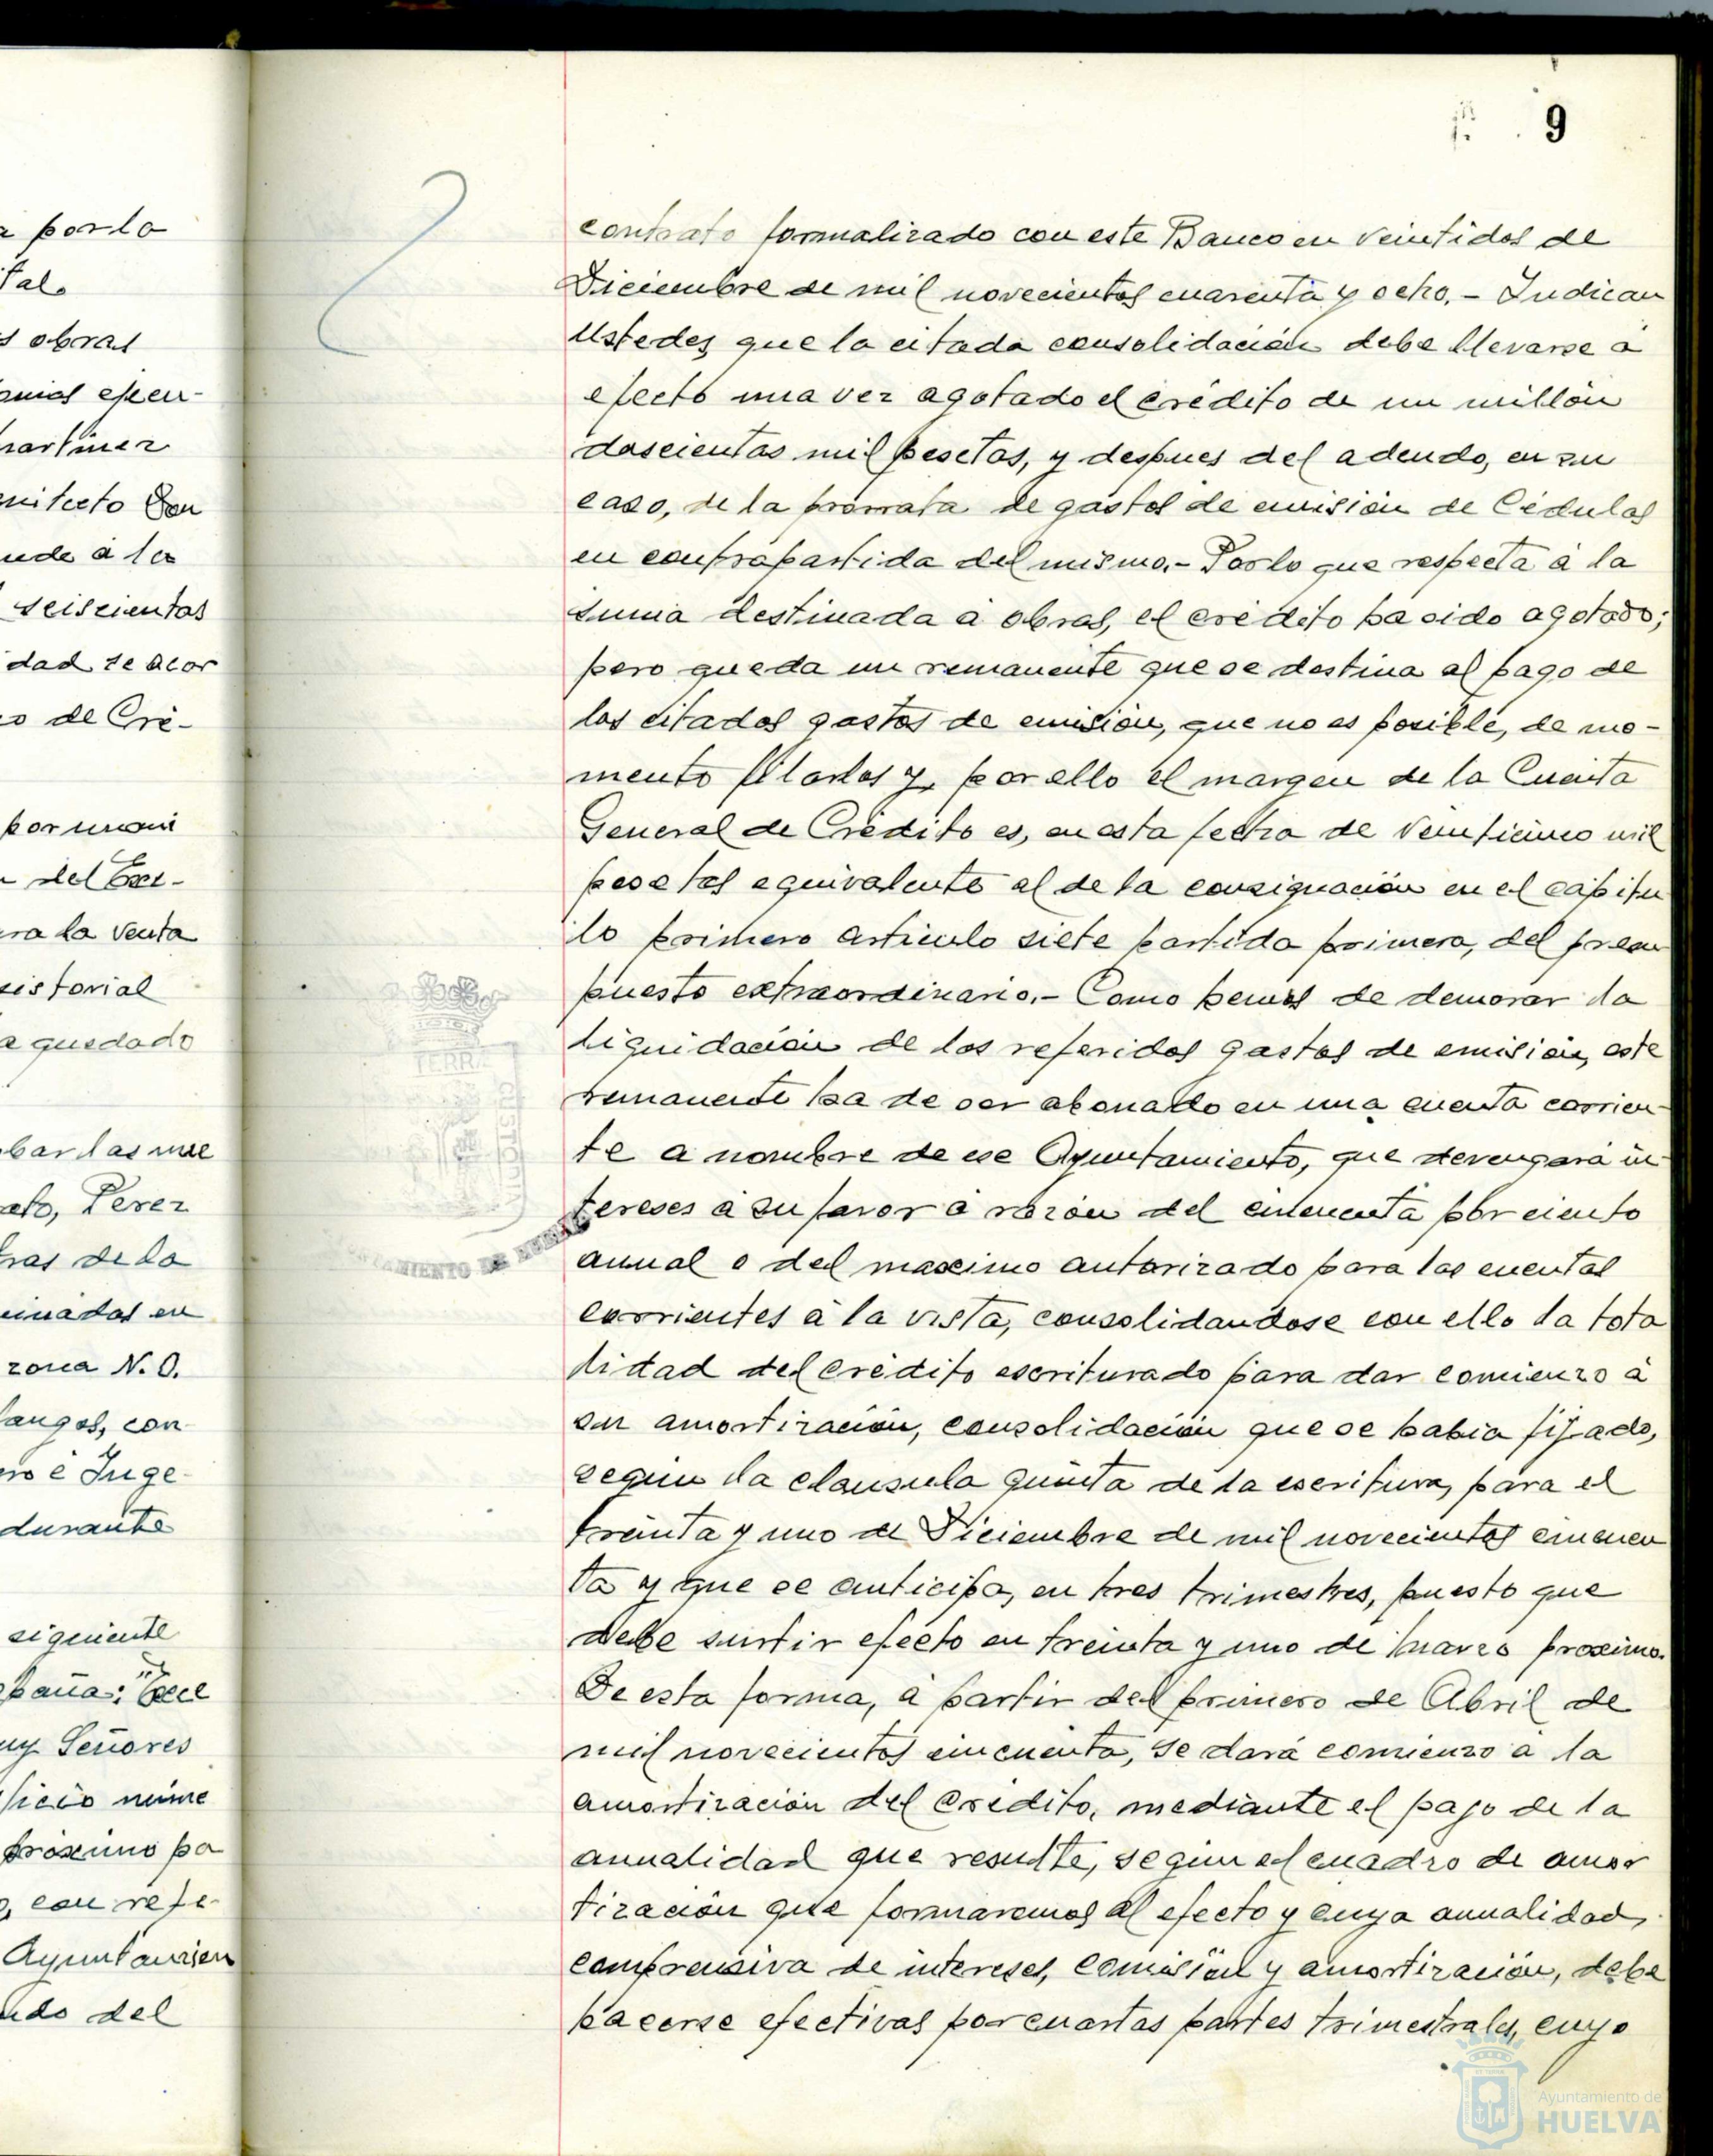 a por la
tal.
s obras
omias ejecu-
martinez
quitecto Don
ude á la
seiscientas
dad se acor
co de Cré-
por unani
del Exc-
ra la venta
sistorial
a quedado
bar las nue
ato, Perez
ras de la
inadas en
zona N.O.
langos, con-
ero é Inge-
durante
siguiente
paña: "Exce
uy Señores
ficio núme
próximo pa
, con refe-
Ayuntamien
ado del
9
contrato formalizado con este Banco en veintidos de
Diciembre de mil novecientos cuarenta y ocho.- Indican
Ustedes que la citada consolidación debe llevarse á
efecto una vez agotado el crédito de un millón
doscientas mil pesetas, y despues del adeudo, en su
caso, de la prorrata de gastos de emisión de Cédulas
en contrapartida del mismo.- Por lo que respecta á la
suma destinada á obras, el crédito ha sido agotado;
pero queda un remanente que se destina al pago de
los citados gastos de emisión, que no es posible, de mo-
mento fijarlos y, por ello el margen de la Cuenta
General de Crédito es, en esta fecha de veinticinco mil
pesetas equivalente al de la consignación en el capitu
lo primero artículo siete partida primera, del presu
puesto extraordinario.- Como hemos de demorar la
liquidación de los referidos gastos de emisión, este
remanente ha de ser abonado en una cuenta corrien-
te a nombre de ese Ayuntamiento, que devengará in-
tereses á su favor á razón del cincuenta por ciento
anual o del maximo autorizado para las cuentas
corrientes á la vista, consolidandose con ello la tota
lidad del crédito escriturado para dar comienzo á
su amortización, consolidación que se habia fijado,
segun la clausula quinta de la escritura, para el
treinta y uno de Diciembre de mil novecientos cincuen
ta y que se anticipa, en tres trimestres, puesto que
debe surtir efecto en treinta y uno de marzo proximo.
De esta forma, á partir del primero de Abril de
mil novecientos cincuenta, se dará comienzo á la
amortización del crédito, mediante el pago de la
anualidad que resulte, segun el cuadro de amor
tización que formaremos al efecto y cuya anualidad,
comprensiva de intereses, comisión y amortización, debe
hacerse efectivas por cuartas partes trimestrales, cuyo
TERRÆ
CUSTODIA
AMIENTO DE HUELVA
Ayuntamiento de
HUELVA